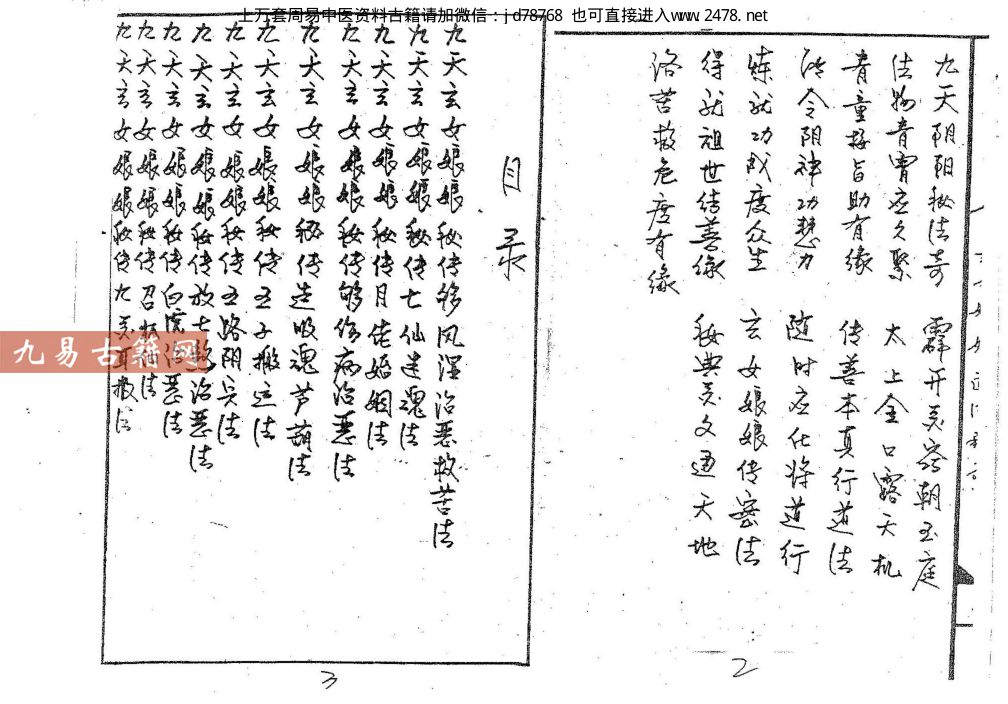 上万套周易中医资料古籍请加微信：jd78768 也可直接进入www.2478.net
九天阴阳秘法奇 霹开灵窍朝玉庭
法物青霄应久聚 太上金口露天机
青童接旨助有缘 传善本真行道法
令阴神功慧力 随时应化将道行
炼就功成度众生 玄女娘娘传密法
得就祖世结善缘 秘典灵文通天地
洛苦救危度有缘
2
目录
九天玄女娘娘秘传移风湿治恶救苦法
九天玄女娘娘秘传七仙迷魂法
九天玄女娘娘秘传月佬婚姻法
九天玄女娘娘秘传移伤病治恶法
九天玄女娘娘秘传造吸魂芦葫法
九天玄女娘娘秘传五子搬运法
九天玄女娘娘秘传五路阴兵法
九天玄女娘娘秘传放七煞治恶法
九天玄女娘娘秘传白虎治恶法
九天玄女娘娘秘传召 法
九天玄女娘娘秘传九灵耳报法
3
九易古籍网